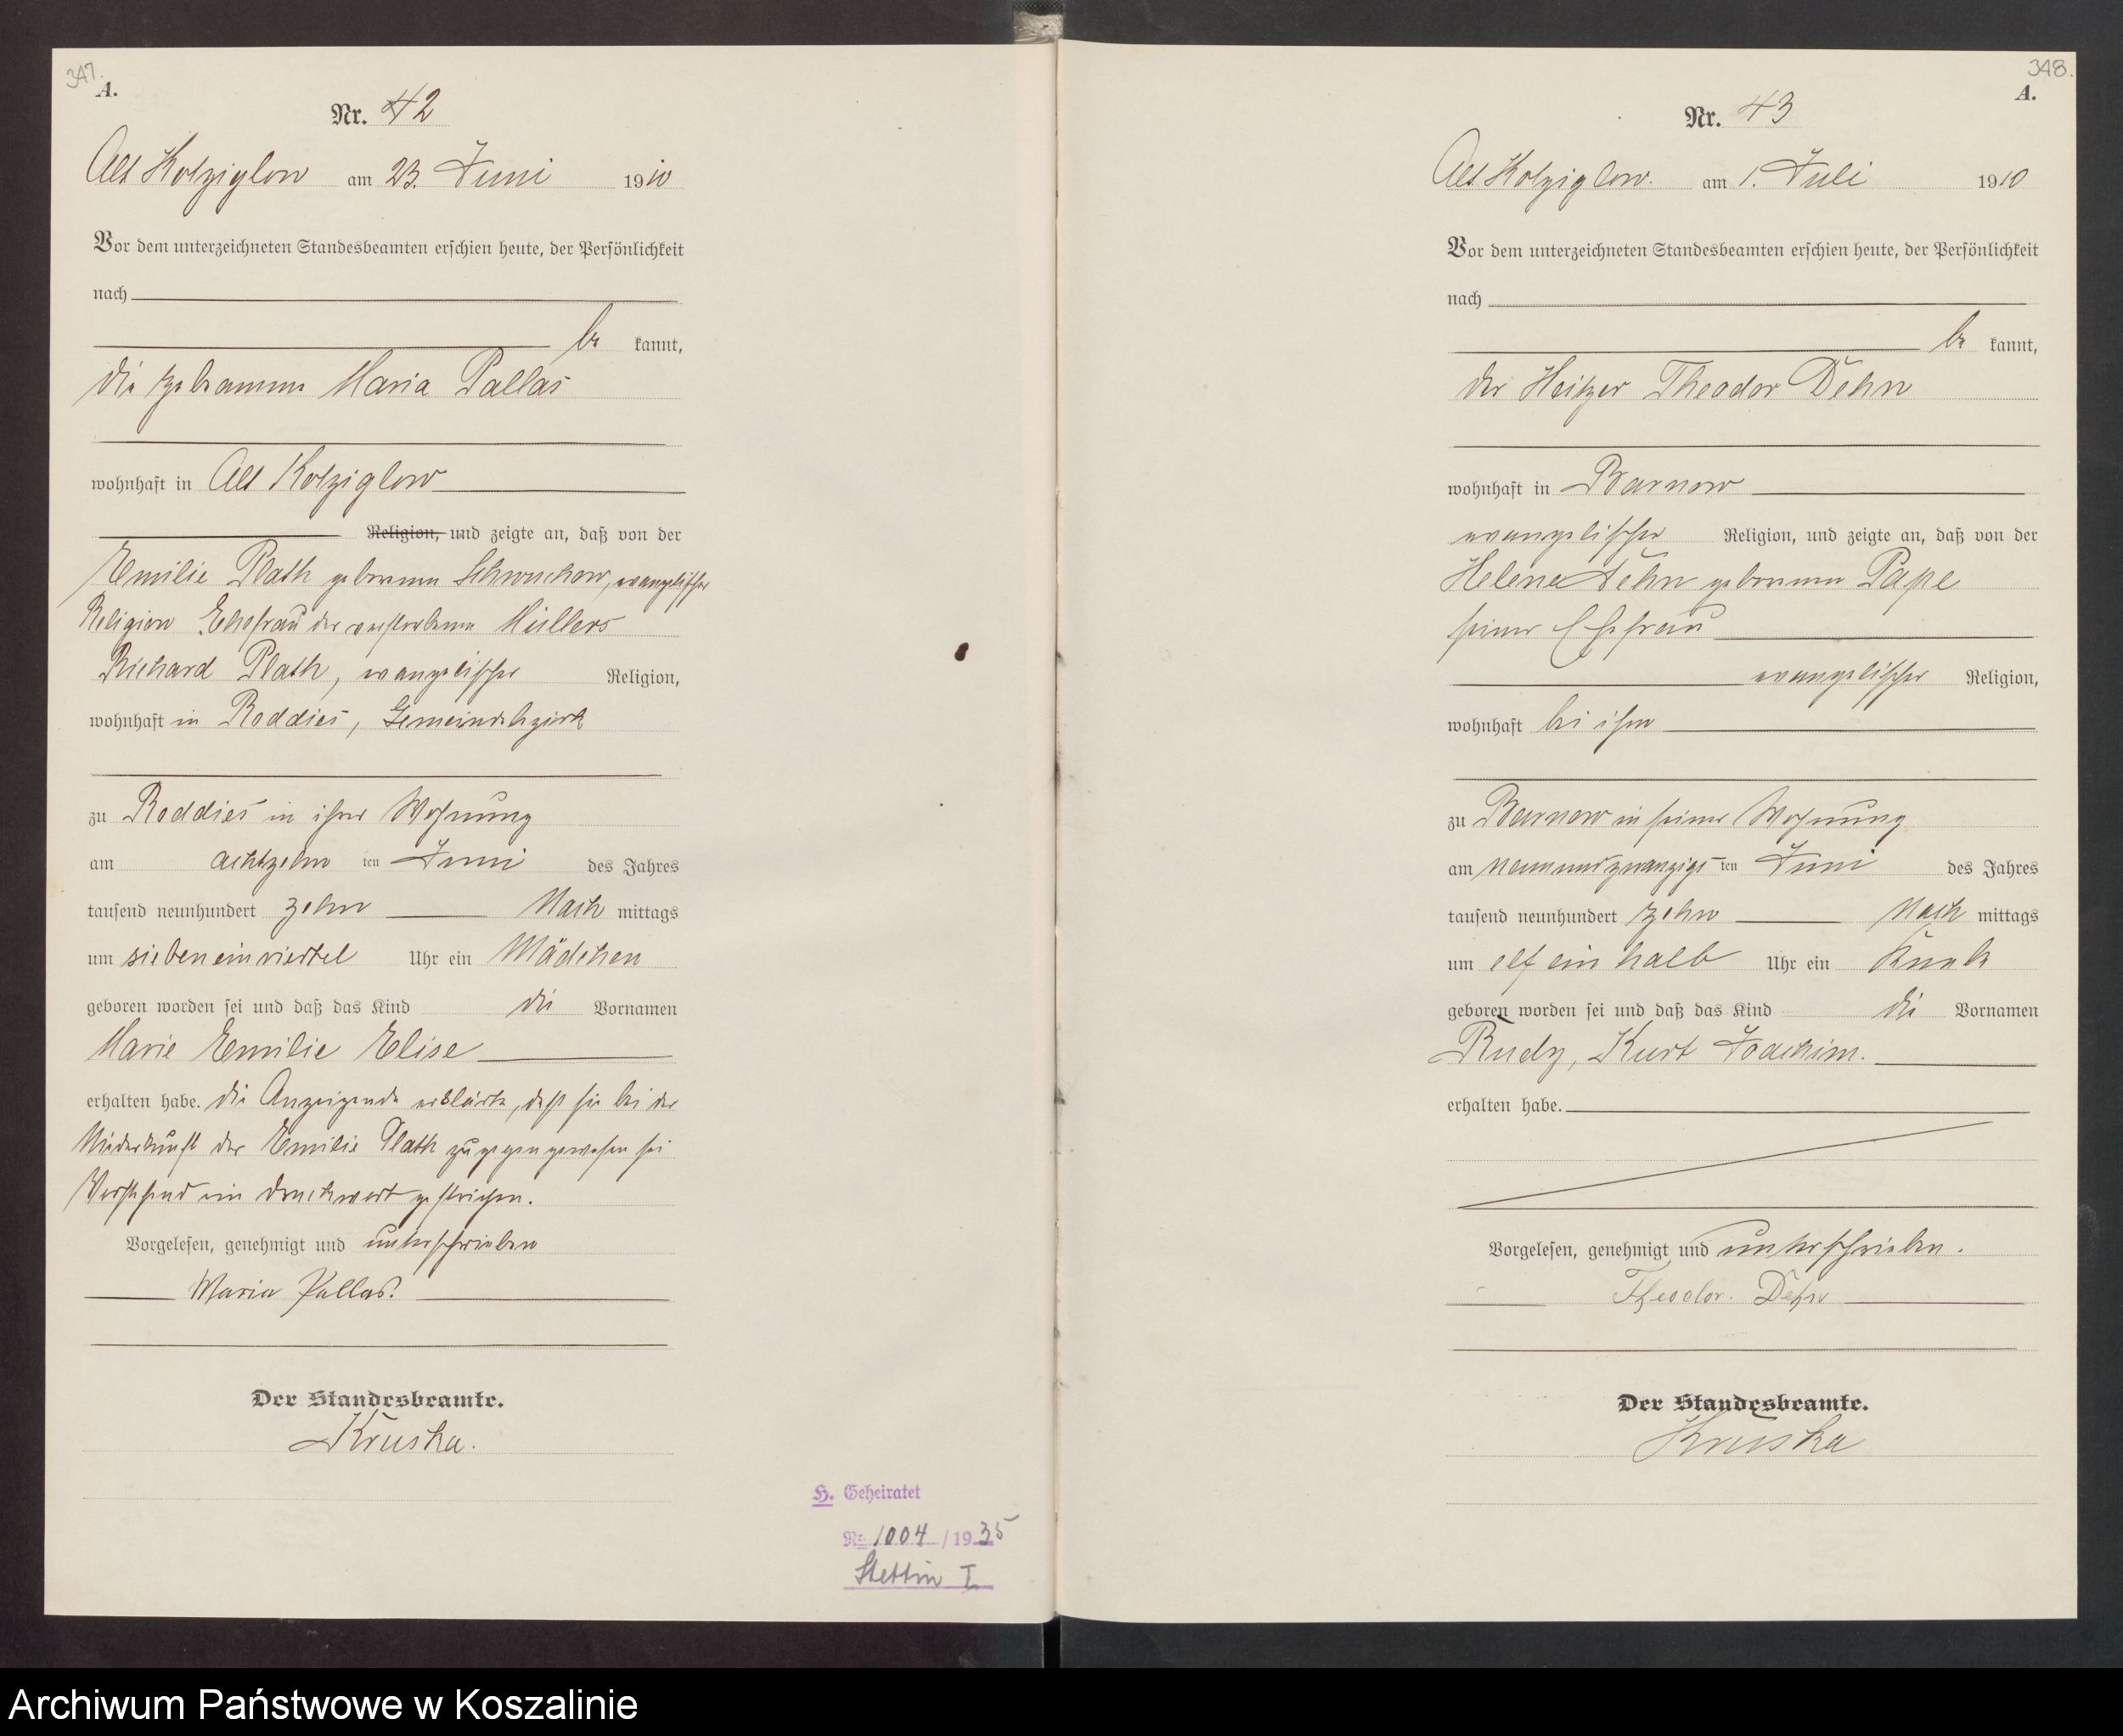 347.
A.
Nr. 42
Alt Kolziglow am 23. Juni 1910
Vor dem unterzeichneten Standesbeamten erschien heute, der Persönlichkeit
nach
be kannt,
die Hebamme Maria Pallas
wohnhaft in Alt Kolziglow
Religion, und zeigte an, daß von der
Emilie Plath geborenen Schwuchow, evangelischer
Religion Ehefrau des verstorbenen Müllers
Richard Plath, evangelischer Religion,
wohnhaft in Roddies, Gemeindebezirk
zu Roddies in ihrer Wohnung
am achtzehn ten Juni des Jahres
tausend neunhundert zehn Nach mittags
um siebeneinviertel Uhr ein Mädchen
geboren worden sei und daß das Kind die Vornamen
Marie Emilie Elise
erhalten habe. Die Anzeigende erklärte, daß sie bei der
Niederkunft der Emilie Plath zugegen gewesen sei
Vorstehend ein Druckwort gestrichen.
Vorgelesen, genehmigt und unterschrieben
Maria Pallas.
Der Standesbeamte.
Kruska.
H. Geheiratet
Nr. 1004 / 1935
Stettin I
348.
A.
Nr. 43
Alt Kolziglow. am 1. Juli 1910
Vor dem unterzeichneten Standesbeamten erschien heute, der Persönlichkeit
nach
be kannt,
der Heitzer Theodor Dehn
wohnhaft in Barnow
evangelischer Religion, und zeigte an, daß von der
Helene Dehn geborenen Pape
seiner Ehefrau
evangelischer Religion,
wohnhaft bei ihm
zu Barnow in seiner Wohnung
am neunundzwanzigs ten Juni des Jahres
tausend neunhundert zehn Nach mittags
um elf ein halb Uhr ein Knabe
geboren worden sei und daß das Kind die Vornamen
Rudy, Kurt Joachim.
erhalten habe.
Vorgelesen, genehmigt und unterschrieben.
Theodor. Dehn
Der Standesbeamte.
Kruska
Archiwum Państwowe w Koszalinie